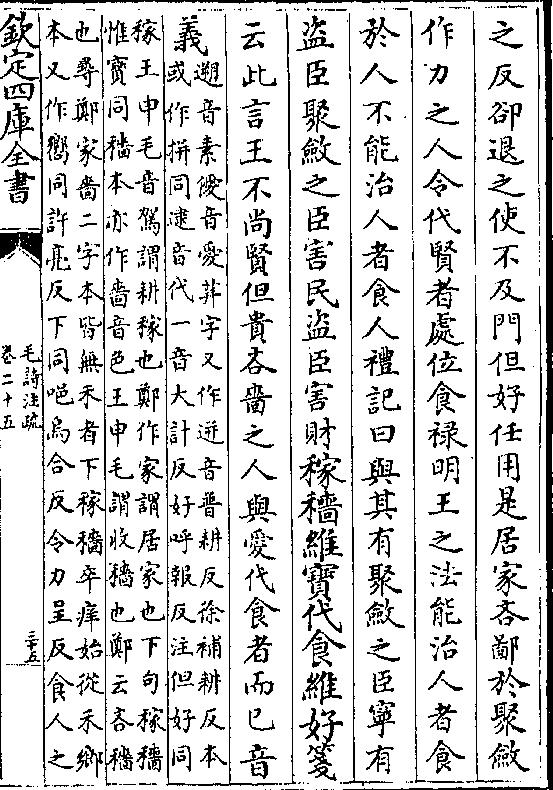 之反卻退之使不及門但好任用是居家吝鄙於聚斂
作力之人令代賢者處位食祿明王之法能治人者食
於人不能治人者食人禮記曰與其有聚斂之臣寧有
盜臣聚斂之臣害民盜臣害財稼穡維寶代食維好箋
云此言王不尚賢但貴吝嗇之人與愛代食者而已音
義遡音素僾音愛荓字又作迸音普耕反徐補耕反本
或作拼同逮音代一音大計反好呼報反注但好同
稼王申毛音駕謂耕稼也鄭作家謂居家也下句稼穡
惟寶同穡本亦作嗇音色王申毛謂收穡也鄭云吝穡
也尋鄭家嗇二字本皆無禾者下稼穡卒痒始從禾鄉
本又作嚮同許亮反下同唈烏合反令力呈反食人之
欽定四庫全書
毛詩注疏
卷二十五
三十五